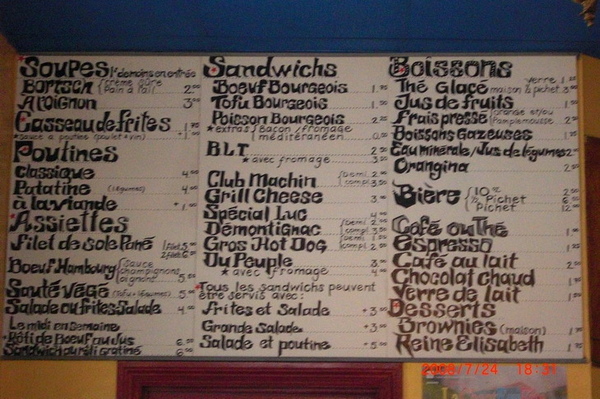 Soupes 1/2 domaison ou entrée
Bortsch crème sûre
pain à l'ail 2.
À l'oignon 3.
Casseau de frites 1.
sauce à poutine (poulet + vin) + 1.
Poutines
Classique 4.
Patatine (légumes) 4.
à la viande + 1.
Assiettes
Filet de sole Pané 1 filet 5.
2 filets 6.
Boeuf Hambourg sauce
champignons
oignons 5.
Sauté Végé (tofu + légumes) 5.
Salade ou frites Salade 4.
Le midi en Semaine
Rôti de Boeuf au Jus 6.
Sandwich au rôti gratiné 6.
Sandwichs
Boeuf Bourgeois 1.
Tofu Bourgeois 1.
Poisson Bourgeois 2.
* extras bacon / fromage
méditeranéen 0.
B.L.T. 2.
* avec fromage 3.
Club Machin demi 2.
compl 3.
Grill Cheese 3.
Spécial Luc 4.
Démontignac demi 2.
compl 3.
Gros Hot Dog demi 1.
compl 2.
Du Peuple 3.
* avec fromage 4.
Tous les sandwichs peuvent
être servis avec:
Frites et Salade + 3.
Grande Salade + 3.
Salade et poutine + 5.
Boissons
Thé Glacé verre 1.
maison pichet 3.
Jus de fruits 1.
frais pressé orange et/ou
pamplemousse 2.
Boissons Gazeuses 1.
Eau minérale/Jus de légumes 2.
Orangina 2.
Bière 10 oz 2.
1/2 Pichet 6.
Pichet 12.
Café ou Thé 1.
Espresso 1.
Café au lait 2.
Chocolat chaud 1.
Verre de lait 1.
Desserts
Brownies (maison) 1.
Reine Elisabeth 1.
2008/7/24 18:31